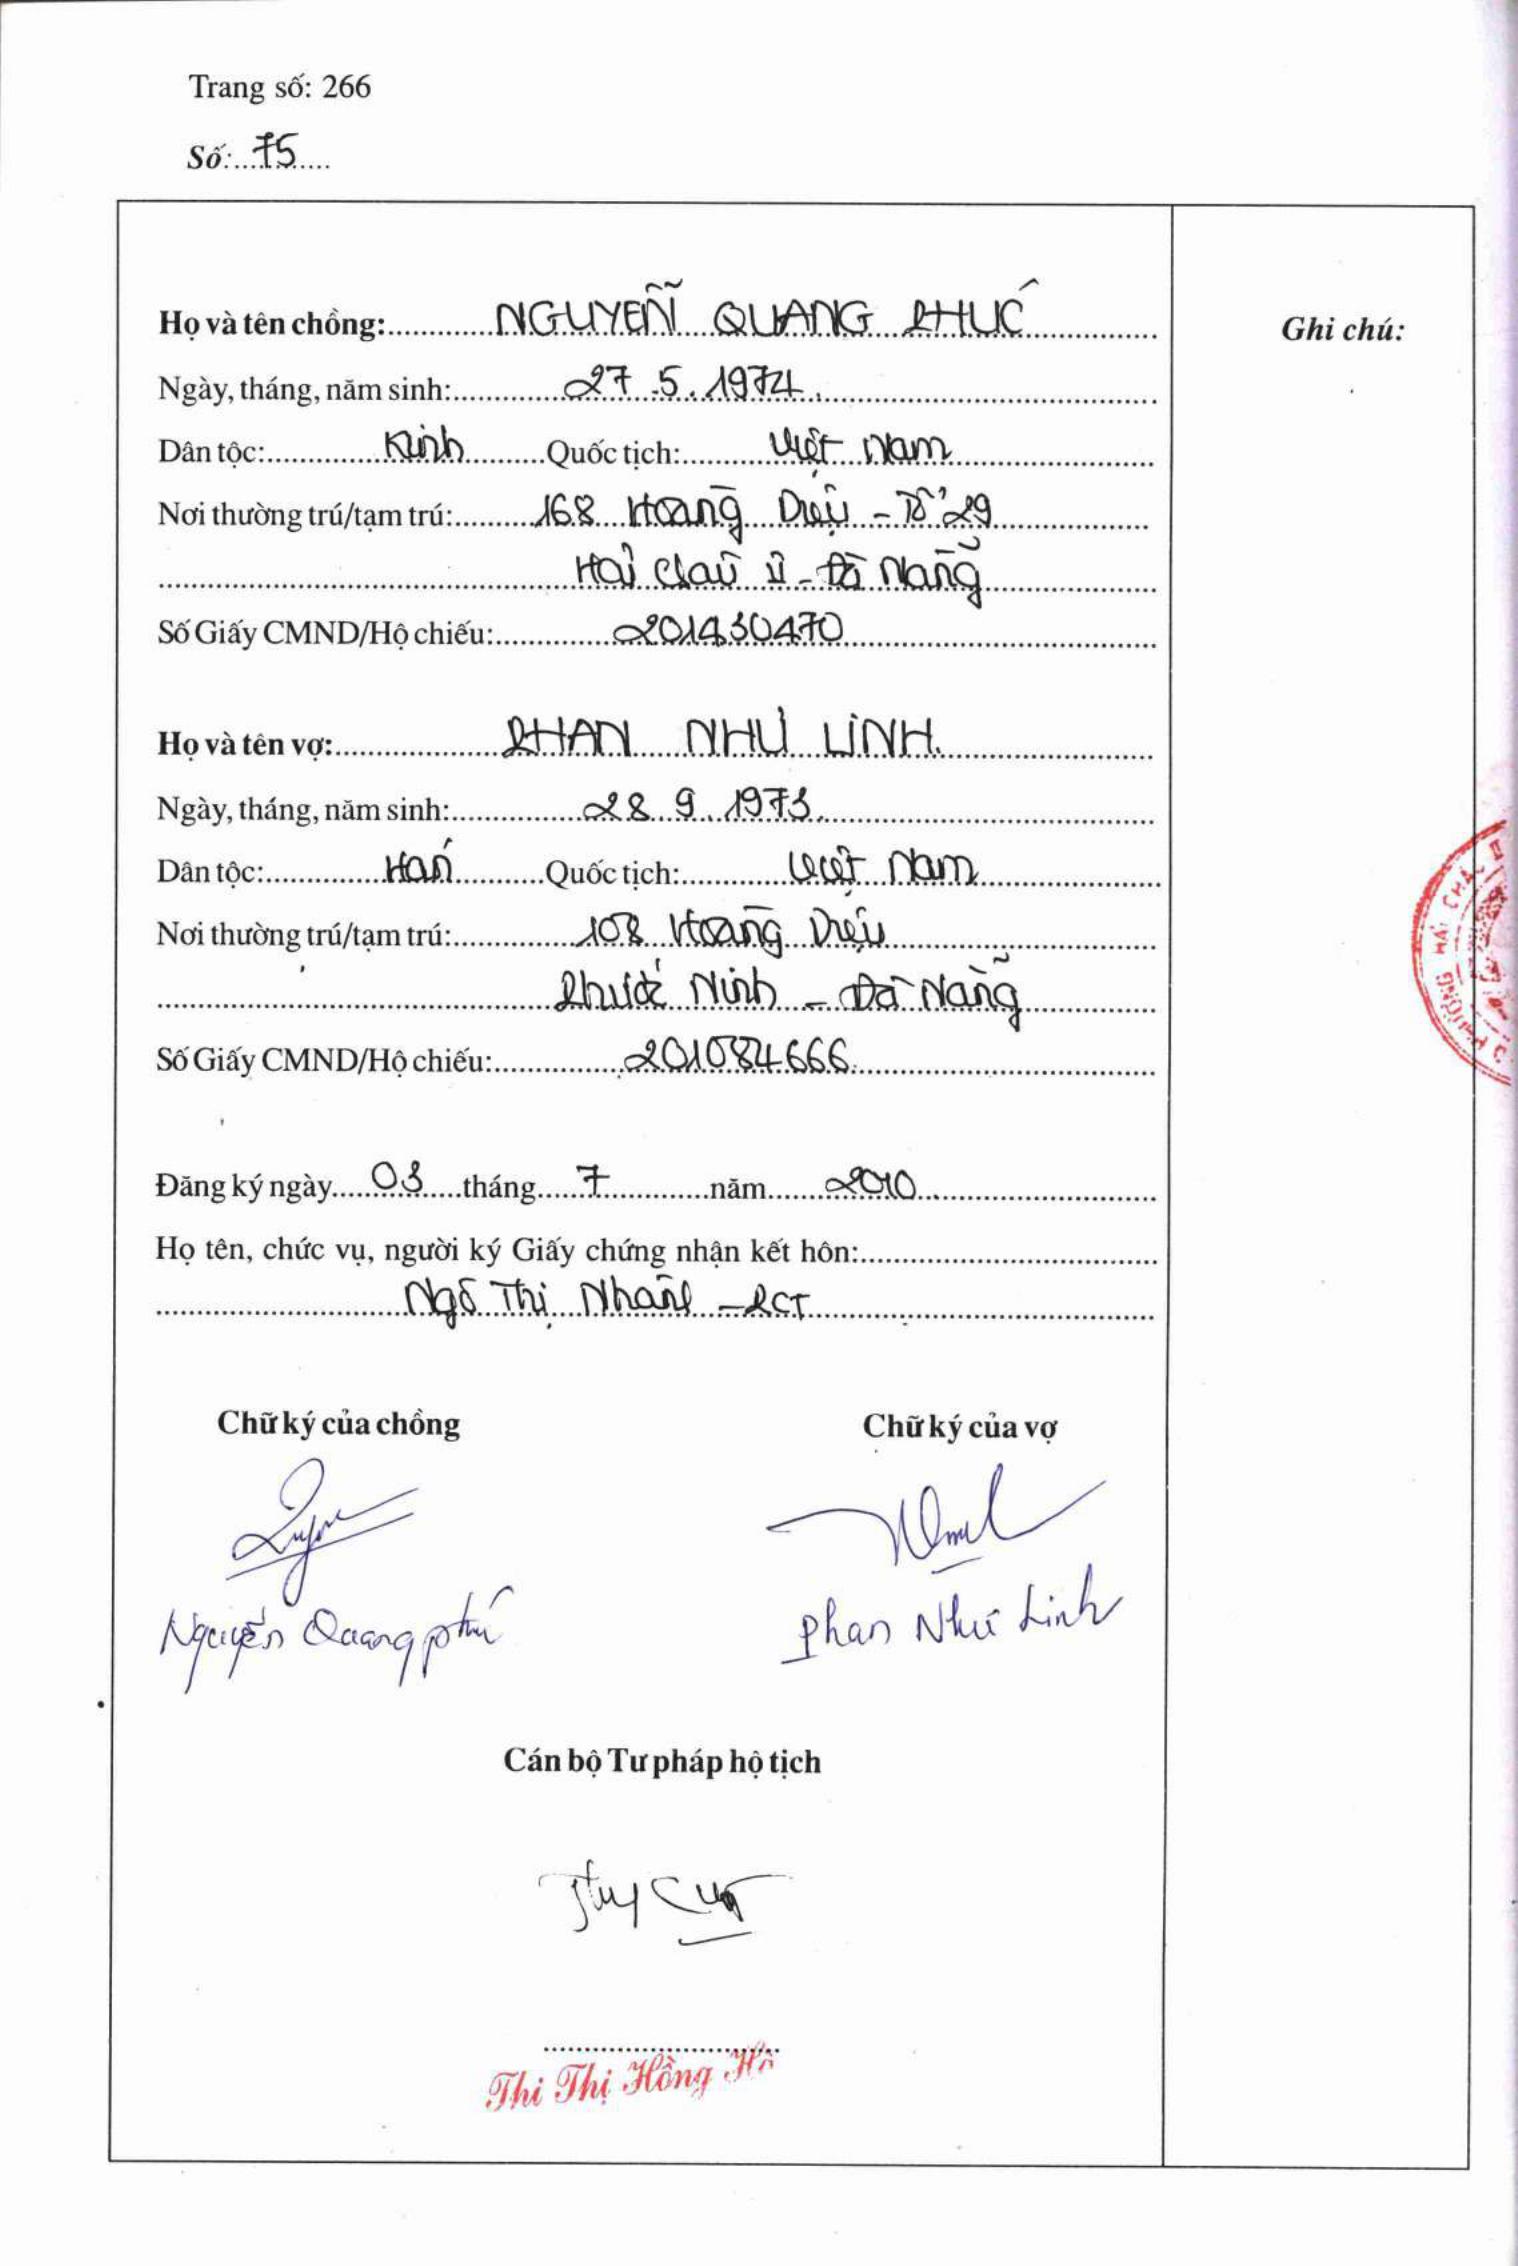 Trang số: 266
Số: 75
Họ và tên chồng: NGUYỄN QUANG PHÚC
Ghi chú:
Ngày, tháng, năm sinh: 27.5.1974.
Dân tộc: Kinh Quốc tịch: Việt Nam
Nơi thường trú/tạm trú: 168 Hoàng Diệu - Tổ 29
Hải Châu II - Đà Nẵng
Số Giấy CMND/Hộ chiếu: 201430470
Họ và tên vợ: PHAN NHƯ LINH.
Ngày, tháng, năm sinh: 28.9.1973.
Dân tộc: Hán Quốc tịch: Việt Nam
Nơi thường trú/tạm trú: 108 Hoàng Diệu
Phước Ninh - Đà Nẵng
Số Giấy CMND/Hộ chiếu: 201084666
Đăng ký ngày 03 tháng 7 năm 2010
Họ tên, chức vụ, người ký Giấy chứng nhận kết hôn:
Ngô Thị Nhàn - PCT
Chữ ký của chồng Chữ ký của vợ
Nguyễn Quang phú Phan Như Linh
Cán bộ Tư pháp hộ tịch
Thi Thị Hồng
PHƯỜNG HẢI CHÂU